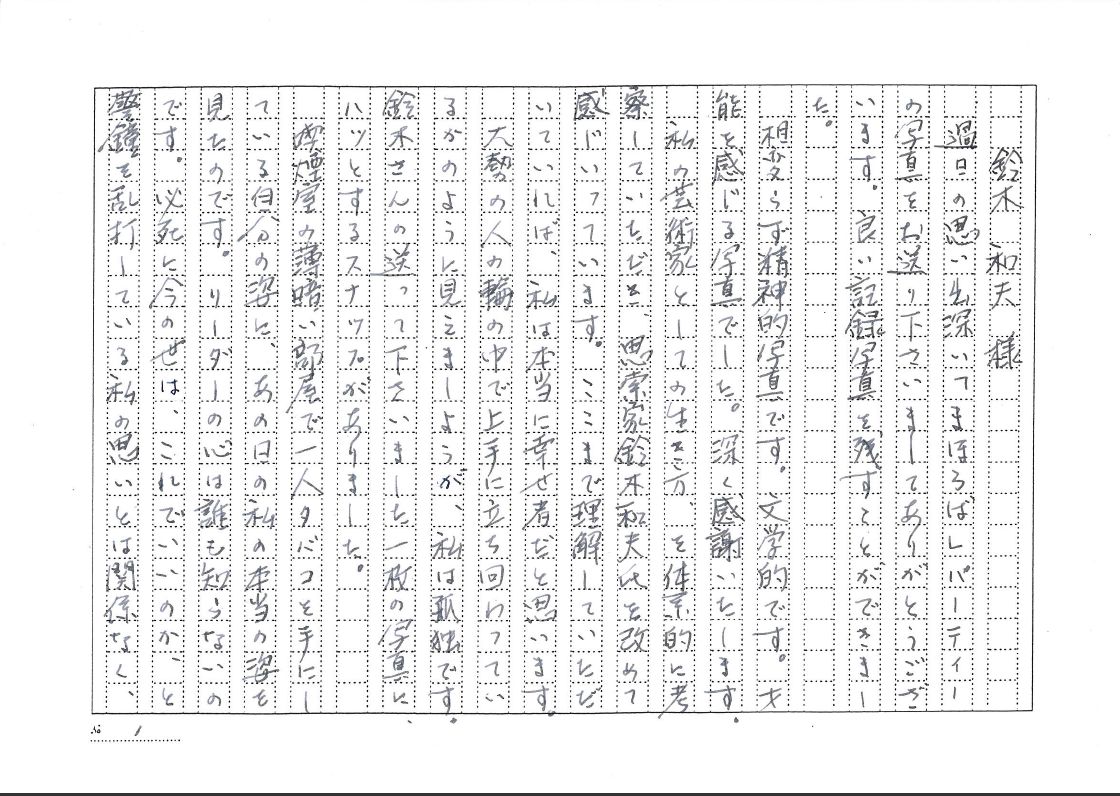 鈴木 和夫 様
過日の思い出深いつまほろばレパーティー
の写真をお送り下さいましてありがとうござ
います。良い記録写真を残すことができまし
た。
相変らず精神的写真です。文学的です。才
能を感じる写真でした。深く感謝いたします。
私の芸術家としての生き方、を体系的に考
察していただき、思索家鈴木和夫氏を改めて
感じいっています。ここまで理解していただ
いていれば、私は本当に幸せ者だと思います。
大勢の人の輪の中で上手に立ち回わってい
るかのように見えましようが、私は孤独です。
鈴木さんの送って下さいました一枚の写真に、
ハッとするスナップがありました。
喫煙室の薄暗い部屋で一人タバコを手にし
ている自分の姿に、あの日の私の本当の姿を
見たのです。リーダーの心は誰も知らないの
です。必死に今の世は、これでいいのか、と
警鐘を乱打している私の思いとは関係なく、
№ 1